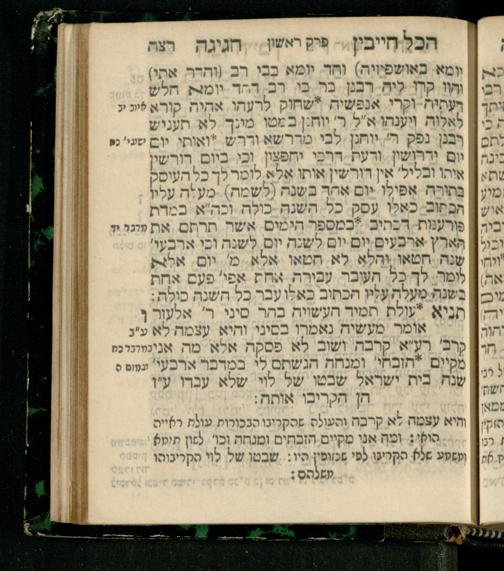 הכל חייבין פרק ראשון חגיגה רצה
יומא באושפיזיה) וחד יומא בבי רב (והדר אתי)
והוו קרו ליה רבנן בר בי רב דחד יומא חלש
דעתיה וקרי אנפשיה *שחוק לרעהו אהיה קורא איוב יב
לאלוה ויענהו א"ל ר' יוחנן במטו מינך לא תעניש
רבנן נפק ר' יוחנן לבי מדרשא ודרש *ואותי יום ישעי' נח
יום ידרושון ודעת דרכי יחפצון וכי ביום דורשין
אותו ובליל' אין דורשין אותו אלא לומר לך כל העוסק
בתורה אפילו יום אחד בשנה (לשמה) מעלה עליו
הכתוב כאלו עסק כל השנה כולה וכה"א במדת
פורענות דכתיב *במספר הימים אשר תרתם את מדבר יד
הארץ ארבעים יום יום לשנה יום לשנה וכי ארבעי'
שנה חטאו והלא לא חטאו אלא מ' יום אלא
לומר לך כל העובר עבירה אחת אפי' פעם אחת
בשנה מעלה עליו הכתוב כאלו עבר כל השנה כולה:
תניא *עולת תמיד העשויה בהר סיני ר' אלעזר ו
אומר מעשיה נאמרו בסיני והיא עצמה לא ע"ב
קרב' רע"א קרבה ושוב לא פסקה אלא מה אני במדבר כח
מקיים *הזבחי' ומנחה הגשתם לי במדבר ארבעי' עמוס ה
שנה בית ישראל שבטו של לוי שלא עבדו ע"ז
הן הקריבו אותה:
והיא עצמה לא קרבה והעולה שהקריבו הבכורות עולת ראייה
הואי: ומה אני מקיים הזבחים ומנחה וכו' לשון תימא
ומשמע שלא הקריבו לפי שנזופין היו: שבטו של לוי הקריבוהו
משלהם: